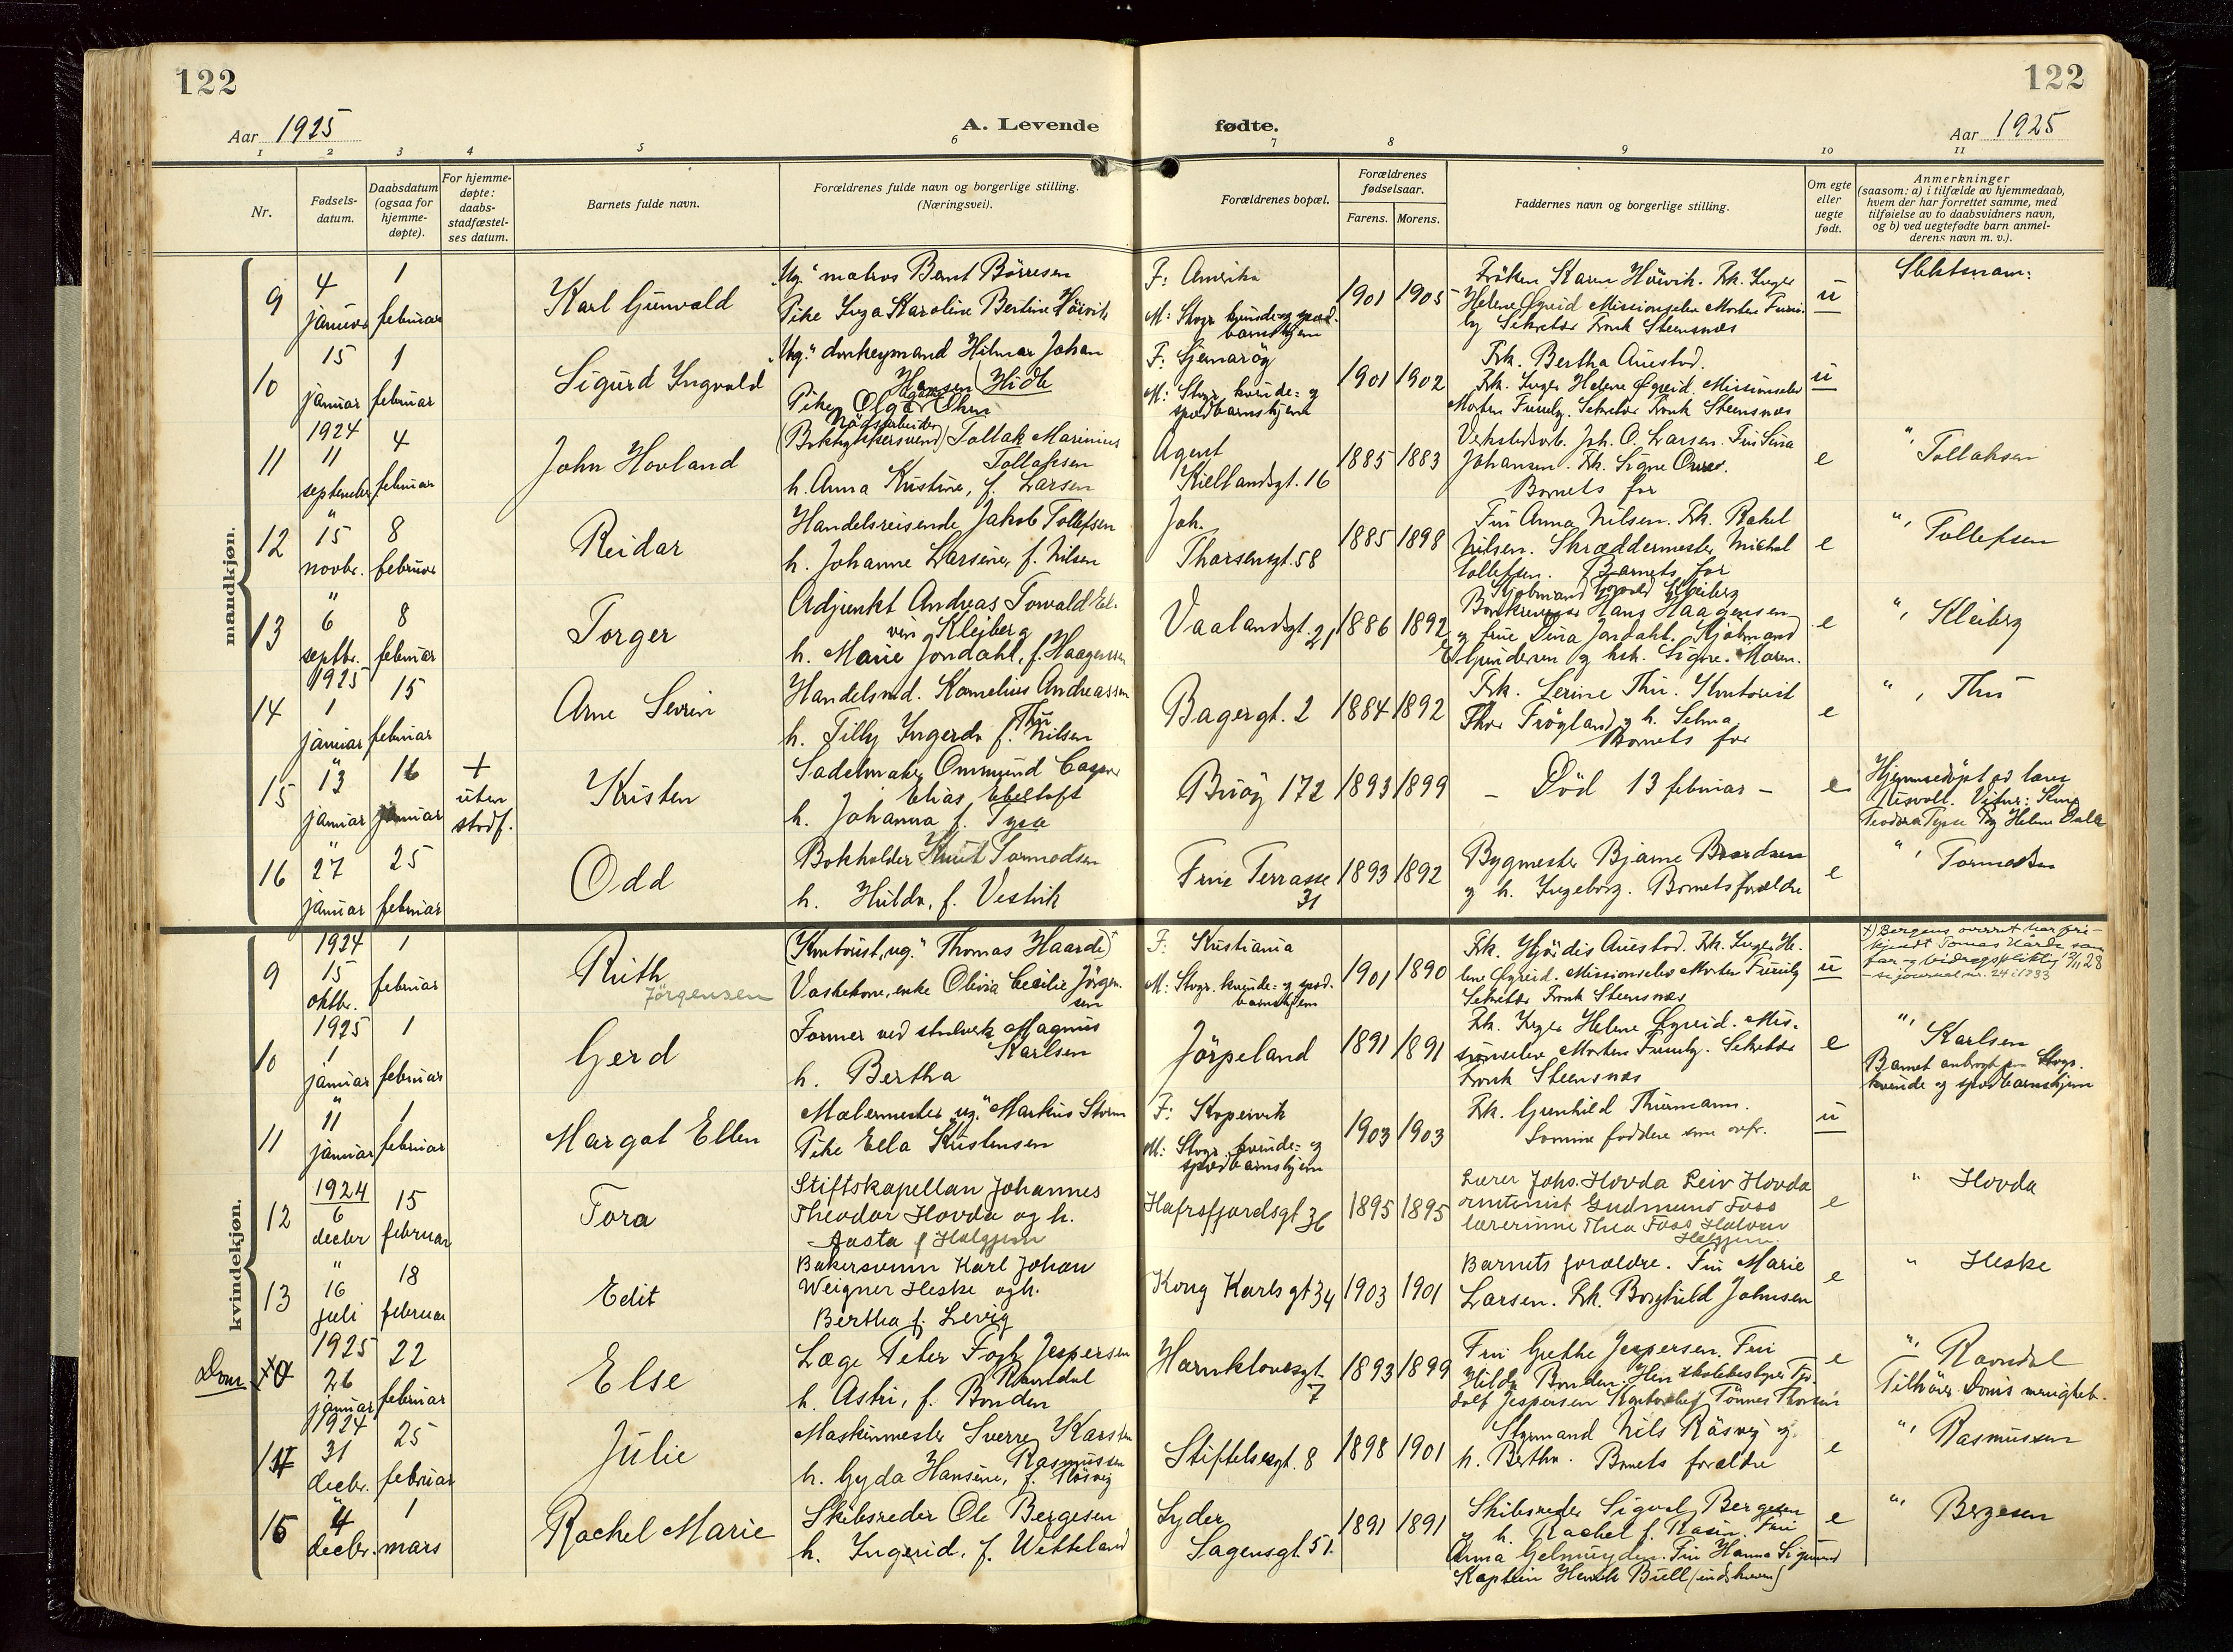 122
122
Aar 1925
A. Levende
fødte.
Aar 1925
1 2 3 4 5 6 7 8 9 10 11
Nr.
Fødsels-
datum.
Daabsdatum
(ogsaa for
hjemme-
døpte).
For hjemme-
døpte:
daabs-
stadfæstel-
ses datum.
Barnets fulde navn.
Forældrenes fulde navn og borgerlige stilling.
(Næringsvei).
Forældrenes bopæl.
Forældrenes
fødselsaar.
Farens. Morens.
Faddernes navn og borgerlige stilling.
Om egte
eller
uegte
født.
Anmerkninger
(saasom: a) i tilfælde av hjemmedaab,
hvem der har forrettet samme, med
tilføielse av to daabsvidners navn,
og b) ved uegtefødte barn anmel-
derens navn m. v.).
mandkjøn.
9
4
januar
1
februar
Karl Gunvald
Ug." matros Bernt Börresen
Pike Inga Karoline Bertine Hövik
F: Amerika
M: Stvgr. kvinde- og sped-
barnshjem
1901 1905
Fröken Karen Hövik. Frk. Inger
Helene Øgreid Missionselev Morten Furu-
ly Sekretær Frank Steensnæs
u
Slektsnavn:
10
15
januar
1
februar
Sigurd Ingvald
"Ug." donkeymand Hilmar Johan
Hansen Hidle
Pike Olga Olsen
F: Sjernarøy
M: Stvgr. kvinde- og
spedbarnshjem
1901 1902
Frk. Bertha Auestad.
Frk. Inger Helene Øgreid. Missionselev
Morten Furuly. Sekretær Frank Steensnæs
u
11
1924
11
september
4
februar
John Hovland
Nödsarbeider
(Boktrykkersvend) Tollak Marinius
Tollaksen
h. Anna Kristine, f. Larsen
Agent
Kiellandsgt. 16
1885 1883
Verkstedsarb. Joh. O. Larsen. Fru Sina
Johansen. Frk. Signe
Barnets far
e
" Tollaksen
12
"
15
novbr.
8
februar
Reidar
Handelsreisende Jakob Tollefsen
h. Johanne Larsine, f. Nilsen
Joh.
Thorsensgt. 58
1885 1898
Fru Anna Nilsen. Frk. Rakel
Nilsen. Skræddermester Michal
Tollefsen. Barnets far
e
" Tollefsen
13
"
6
septbr.
8
februar
Torger
Adjunkt Andreas Torvald Ed-
vin Kleiberg
h. Marie Jondahl, f. Haagensen
Vaalandsgt. 21
1886 1892
Kjøbmand Kleiberg
Hans Haagensen
og frue Dina Jondahl. Kjøbmand
E Gundersen og hst. Signe. Maren.
e
" Kleiberg
14
1925
1
januar
15
februar
Arne Sevrin
Handelsmd. Kornelius Andreassen
Thu
h. Tilly Ingerda f. Nilsen
Bagergt. 2
1884 1892
Frk. Serine Thu. Kontorist
Thor Frøyland og h. Selma
Barnets far
e
" Thu
15
"
13
januar
16
januar
+
uten
stadf.
Kristen
Sadelmaker Ommund Casper
Elias Ebeltoft
h. Johanna f. Tysse
Buöy 172
1893 1899
— Död 13 februar —
e
Hjemmedöpt av lærer
Risvoll. Vitner:
Teodora Tysse og Helene
16
"
27
januar
25
februar
Odd
Bokholder Knut Tormodsen
h. Hulda, f. Vestvik
Frue Terrasse
31
1893 1892
Bygmester Bjarne Baardsen
og h. Ingeborg. Barnets forældre
e
" Tormodsen
kvindekjøn.
9
1924
15
oktbr.
1
februar
Ruth
Jörgensen
(Kontorist, ug." Thomas Haarde)+
Vaskekone, enke Olivia Cecilie Jörgen-
sen
F: Kristiania
M: Stvgr. kvinde- og sped-
barnshjem
1901 1890
Frk. Hjördis Auestad. Frk. Inger He-
lene Øgreid. Missionselev Morten Furuly
Sekretær Frank Steensnæs
u
+) Bergens overret har fri-
kjendt Tomas Hårde som
far og bidragspliktig 13/11 28
- se journal nr. 24 i 1933
10
1925
1
januar
1
februar
Gerd
Former ved stalverk Magnus
Karlsen
h. Bertha
Jörpeland
1891 1891
Frk. Inger Helene Øgreid. Mis-
sionselev Morten Furuly. Sekretær
Frank Steensnæs
e
" Karlsen
Barnet anbragt paa Stvgr.
kvinde og spedbarnshjem
11
"
11
januar
1
februar
Margot Ellen
Malermester "ug." Markus Storm
Pike Ella Kristensen
F: Kopervik
M: Stvgr. kvinde- og
spedbarnshjem
1903 1903
Frk. Gunhild Thurmann.
Samme faddere som ovfr.
u
12
1924
6
decbr
15
februar
Tora
Stiftskapellan Johannes
Theodor Hovda og h.
Aasta f Helgjem
Hafrsfjordsgt 36
1895 1895
Lærer Johs. Hovda Leiv Hovda
Gudmund Foss
lærerinne Thea Foss Halvor
Helgjem.
e
" Hovda
13
"
16
juli
18
februar
Edit
Bakersvenn Karl Johan
Weigner Heske og h.
Bertha f. Levig
Kong Karls gt 34
1903 1901
Barnets forældre. Fru Marie
Larsen. Frk. Borghild Johnsen
e
" Heske
Dom
1925
26
januar
22
februar
Else
Læge Peter Fogh Jespersen
Ravndal
h. Astri, f. Bonden
Harukloves gt
7
1893 1899
Fru Grethe Jespersen. Fru
Hilda Bonden. Herr skolebestyrer
Jespersen Kontorchef Tönnes Thorsen
e
" Ravndal
Tilhører Doms menighet.
14
1924
31
decbr.
25
februar
Julie
Maskinmester Sverre Karsten
Rasmussen
h. Gyda Hansine, f. Räsvig
Stiftelsesgt. 8
1898 1901
Styrmand Nils Räsvig og
h. Bertha. Barnets forældre
e
" Rasmussen
15
"
4
decbr.
1
mars
Rachel Marie
Skibsreder Ole Bergesen
h. Ingerid, f. Wetteland
Lyder
Sagensgt. 51.
1891 1891
Skibsreder Sigval Bergesen
og h. Rachel f. Racin. Fru
Anna Gelmuyden. Fru Hanna Sigmund
Kaptein Henrik Bull (indskreven)
e
" Bergesen